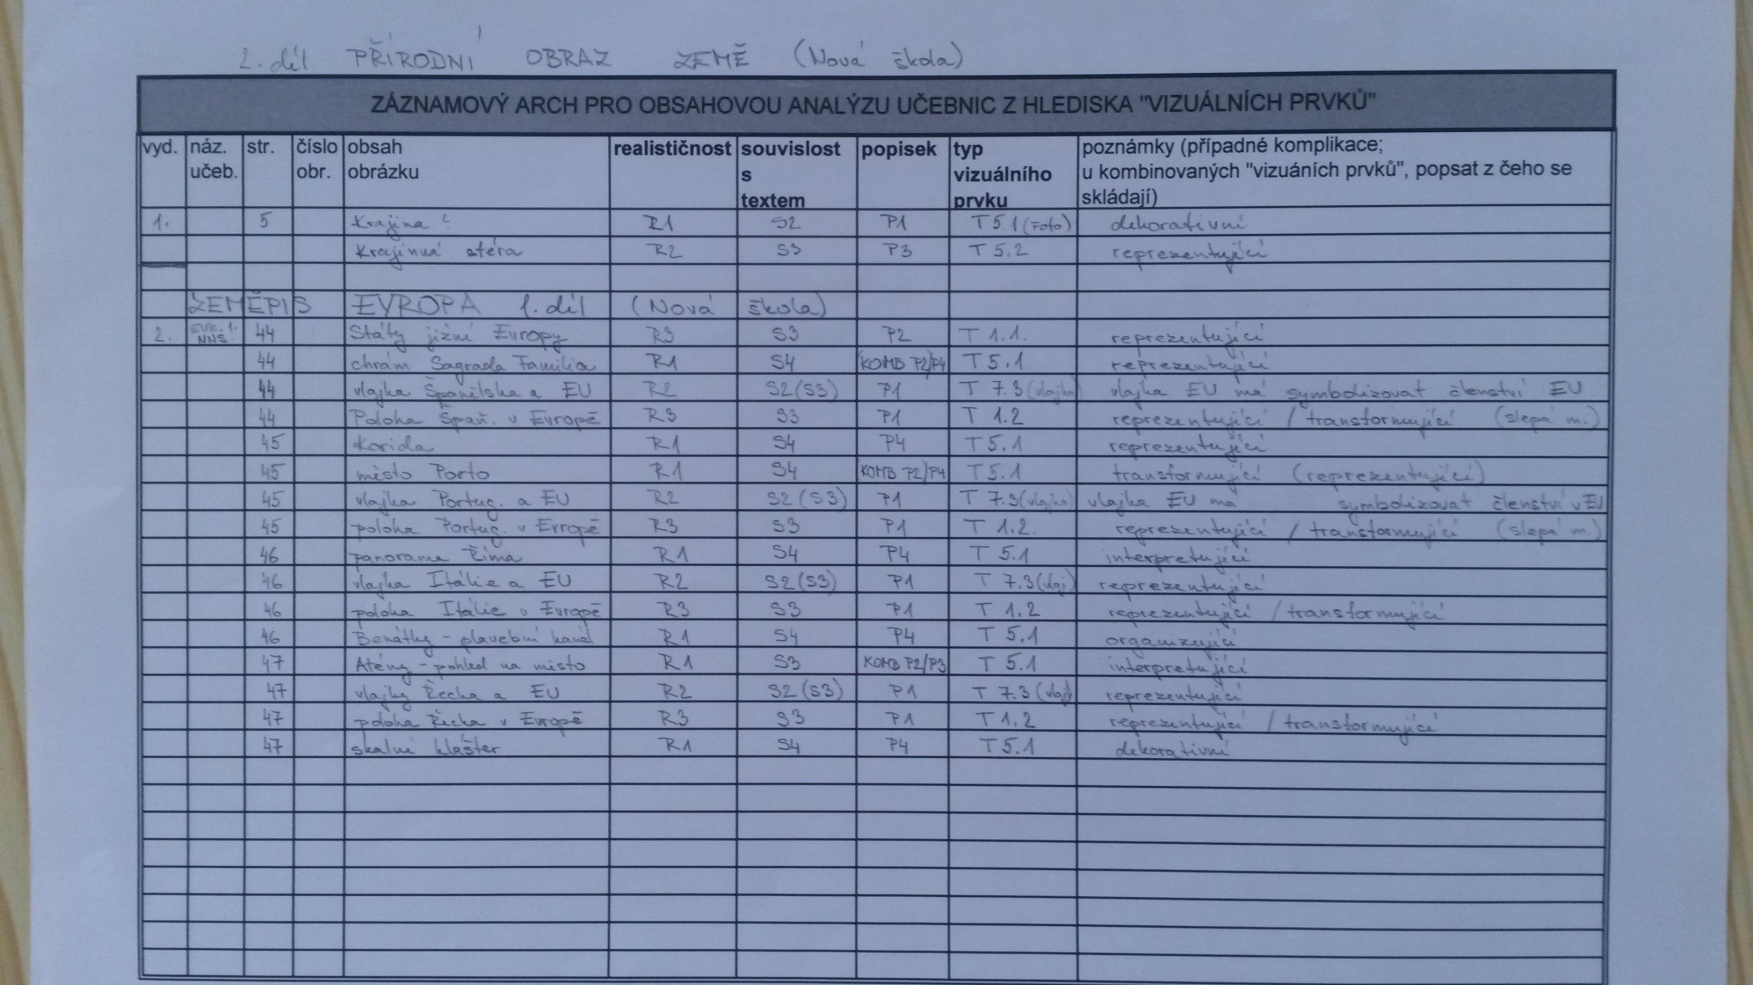 2. díl PŘÍRODNÍ OBRAZ ZEMĚ (Nová škola)
ZÁZNAMOVÝ ARCH PRO OBSAHOVOU ANALÝZU UČEBNIC Z HLEDISKA "VIZUÁLNÍCH PRVKŮ"
vyd. náz. učeb. str. číslo obr. obsah obrázku realističnost souvislost s textem popisek typ vizuálního prvku poznámky (případné komplikace; u kombinovaných "vizuáních prvků", popsat z čeho se skládají)
1. 5 Krajina R1 S2 P1 T 5.1 (Foto) dekorativní
Krajinná sféra R2 S3 P3 T 5.2 reprezentující
ZEMĚPIS EVROPA 1. díl (Nová škola)
2. 44 Státy jižní Evropy R3 S3 P2 T 1.1. reprezentující
44 chrám Sagrada Familia R1 S4 KOMB P2/P4 T 5.1 reprezentující
44 vlajka Španělska a EU R2 S2 (S3) P1 T 7.3 (vlajka) vlajka EU má symbolizovat členství EU
44 Poloha Špaň. v Evropě R3 S3 P1 T 1.2 reprezentující / transformující (slepá m.)
45 Korida R1 S4 P4 T 5.1 reprezentující
45 město Porto R1 S4 KOMB P2/P4 T 5.1 transformující (reprezentující)
45 vlajka Portug. a EU R2 S2 (S3) P1 T 7.3 (vlajka) vlajka EU má symbolizovat členství v EU
45 poloha Portug. v Evropě R3 S3 P1 T 1.2. reprezentující / transformující (slepá m.)
46 panorama Říma R1 S4 P4 T 5.1 interpretující
46 vlajka Itálie a EU R2 S2 (S3) P1 T 7.3 (vlaj) reprezentující
46 poloha Itálie v Evropě R3 S3 P1 T 1.2 reprezentující / transformující
46 Benátky - plavební kanál R1 S4 P4 T 5.1 organizující
47 Atény - pohled na město R1 S3 KOMB P2/P3 T 5.1 interpretující
47 vlajky Řecka a EU R2 S2 (S3) P1 T 7.3 (vlaj) reprezentující
47 poloha Řecka v Evropě R3 S3 P1 T 1.2 reprezentující / transformující
47 skalní klášter R1 S4 P4 T 5.1 dekorativní